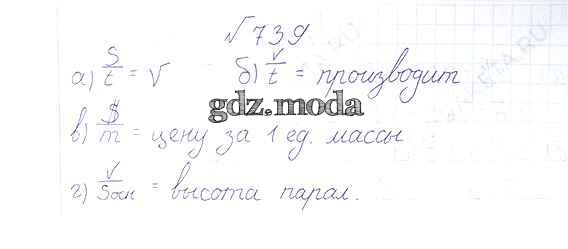 №739
а) S/t = V б) V/t = производит
gdz.moda
в) $/m = цену за 1 ед. массы
г) V/Sосн = высота парал.